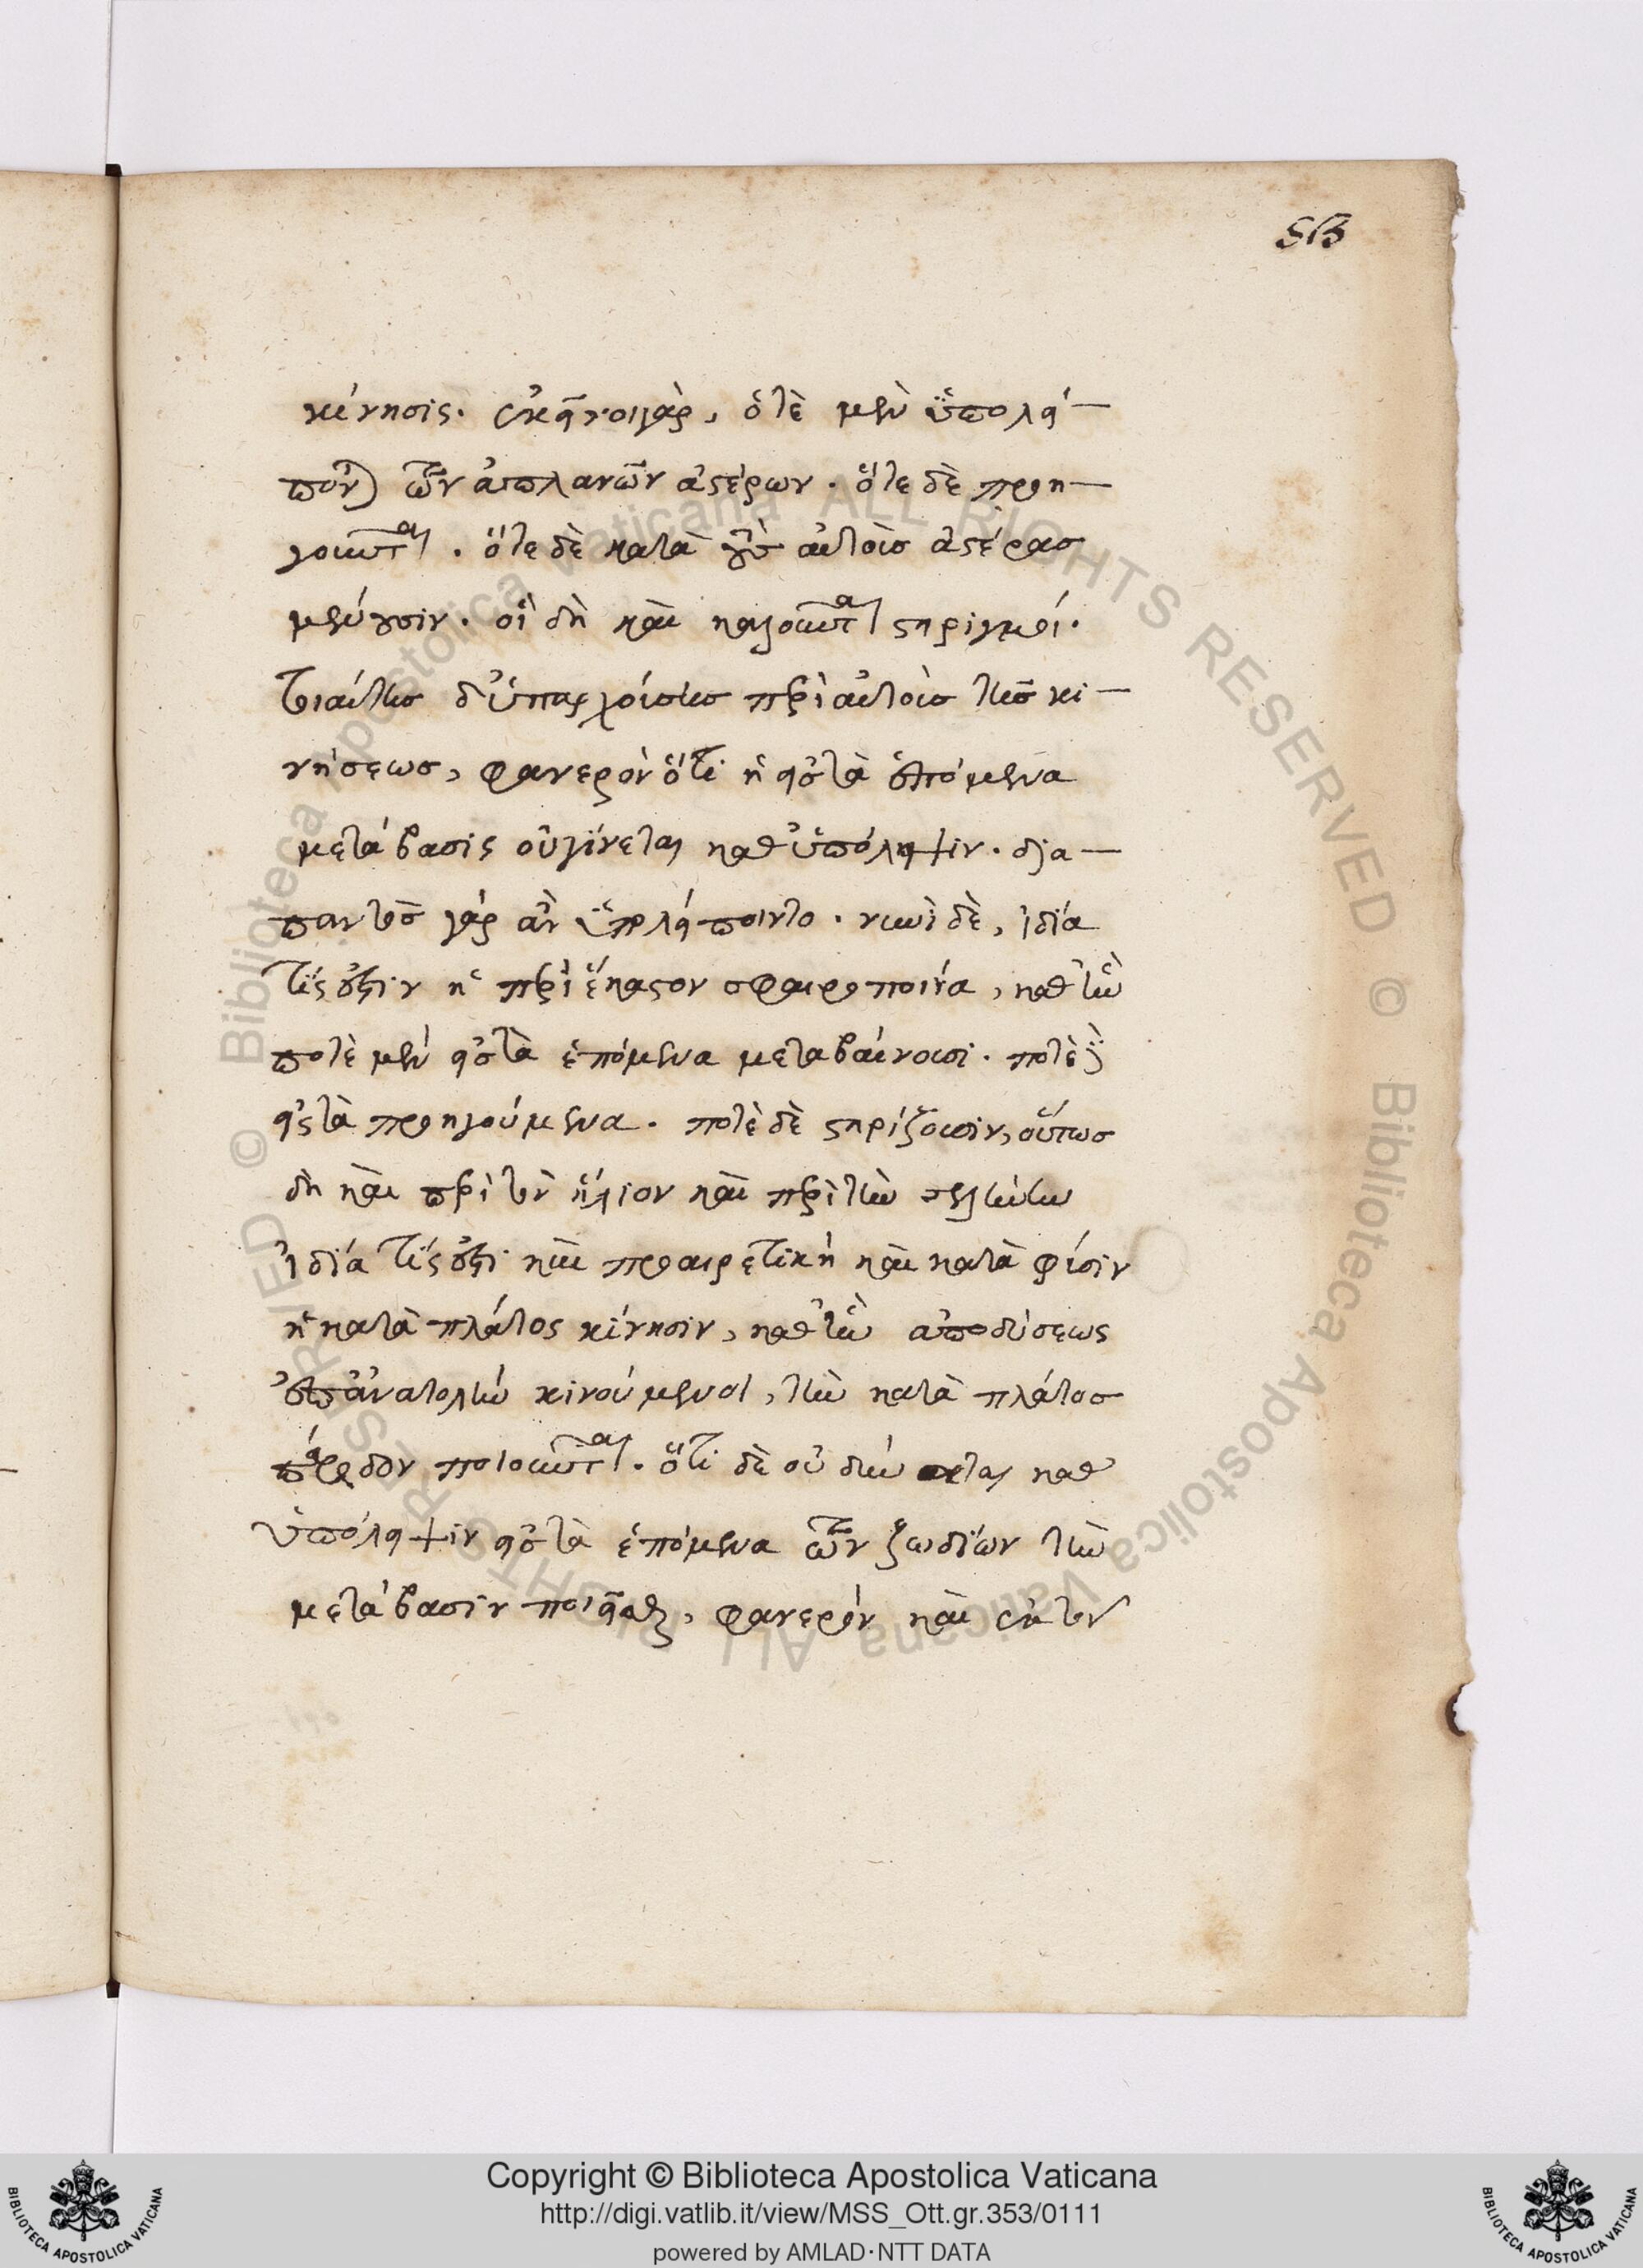 513
κίνησις. ἐκεῖνοι γὰρ, ὁτὲ μὲν ὑπολεί-
πονται τῶν ἀπλανῶν ἀστέρων. ὅτε δὲ προη-
γοῦνται. ὅτε δὲ κατὰ τοὺς αὐτοὺς ἀστέρας
μένουσιν. οἳ δὴ καὶ καλοῦνται στηριγμοί.
τοιαύτης δ' ὑπαρχούσης περὶ αὐτοὺς τῆς κι-
νήσεως, φανερὸν ὅτι ἡ εἰς τὰ ἑπόμενα
μετάβασις οὐ γίνεται καθ' ὑπόλειψιν. δια-
παντὸς γὰρ ἂν ὑπελείποιντο. νυνὶ δὲ, ἰδία
τίς ἐστιν ἡ περὶ ἕκαστον σφαιροποιία, καθ' ἣν
ποτὲ μὲν εἰς τὰ ἑπόμενα μεταβαίνουσι. ποτὲ δὲ
εἰς τὰ προηγούμενα. ποτὲ δὲ στηρίζουσιν, οὕτως
δὴ καὶ περὶ τὸν ἥλιον καὶ περὶ τὴν σελήνην
ἰδία τίς ἐστι καὶ προαιρετικὴ καὶ κατὰ φύσιν
ἡ κατὰ πλάτος κίνησιν, καθ' ἣν ἀπὸ δύσεως
ἐπ' ἀνατολὴν κινούμενοι, τὴν κατὰ πλάτος
πάροδον ποιοῦνται. ὅτι δὲ οὐ δύναται καθ
ὑπόλειψιν εἰς τὰ ἑπόμενα τῶν ζωδίων τὴν
μετάβασιν ποιεῖσθαι, φανερὸν καὶ ἐκ τῶν
© Biblioteca Apostolica Vaticana ALL RIGHTS RESERVED © Biblioteca Apostolica Vaticana ALL RIGHTS RESERVED
Copyright © Biblioteca Apostolica Vaticana
http://digi.vatlib.it/view/MSS_Ott.gr.353/0111
powered by AMLAD·NTT DATA
BIBLIOTECA APOSTOLICA VATICANA
BIBLIOTECA APOSTOLICA VATICANA